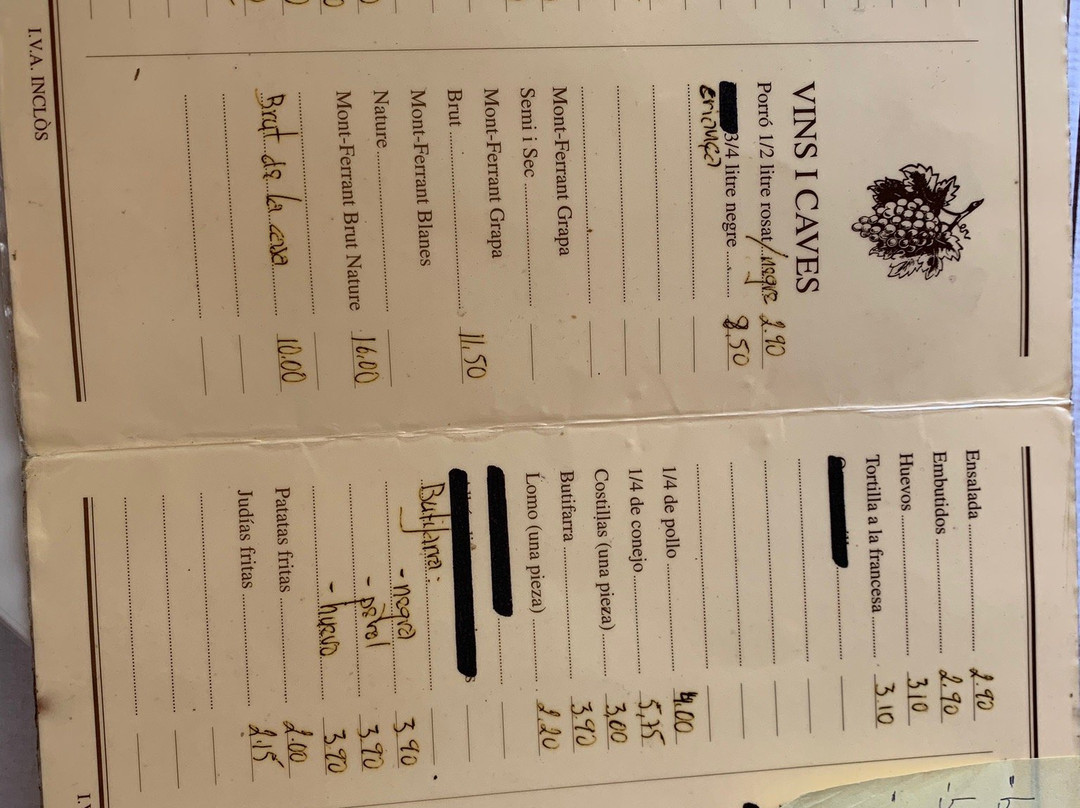 VINS I CAVES
Porró 1/2 litre rosat/negre 2.90
3/4 litre negre ........ 8,50
envAsa
Mont-Ferrant Grapa
Semi i Sec
Mont-Ferrant Grapa
Brut ........ 11.50
Mont-Ferrant Blanes
Nature
Mont-Ferrant Brut Nature 16.00
Brut de la casa 10.00
I.V.A. INCLÒS
Ensalada ........ 2.90
Embutidos ........ 2.90
Huevos ........ 3.10
Tortilla a la francesa ........ 3.10
1/4 de pollo ........ 4.00
1/4 de conejo ........ 5,75
Costillas (una pieza) 3,00
Butifarra ........ 3.90
Lomo (una pieza) ........ 2.20
Butifarra:
- negra 3.90
- perol 3.90
- huevo 3.90
Patatas fritas ........ 2.00
Judías fritas ........ 2.15
I.V